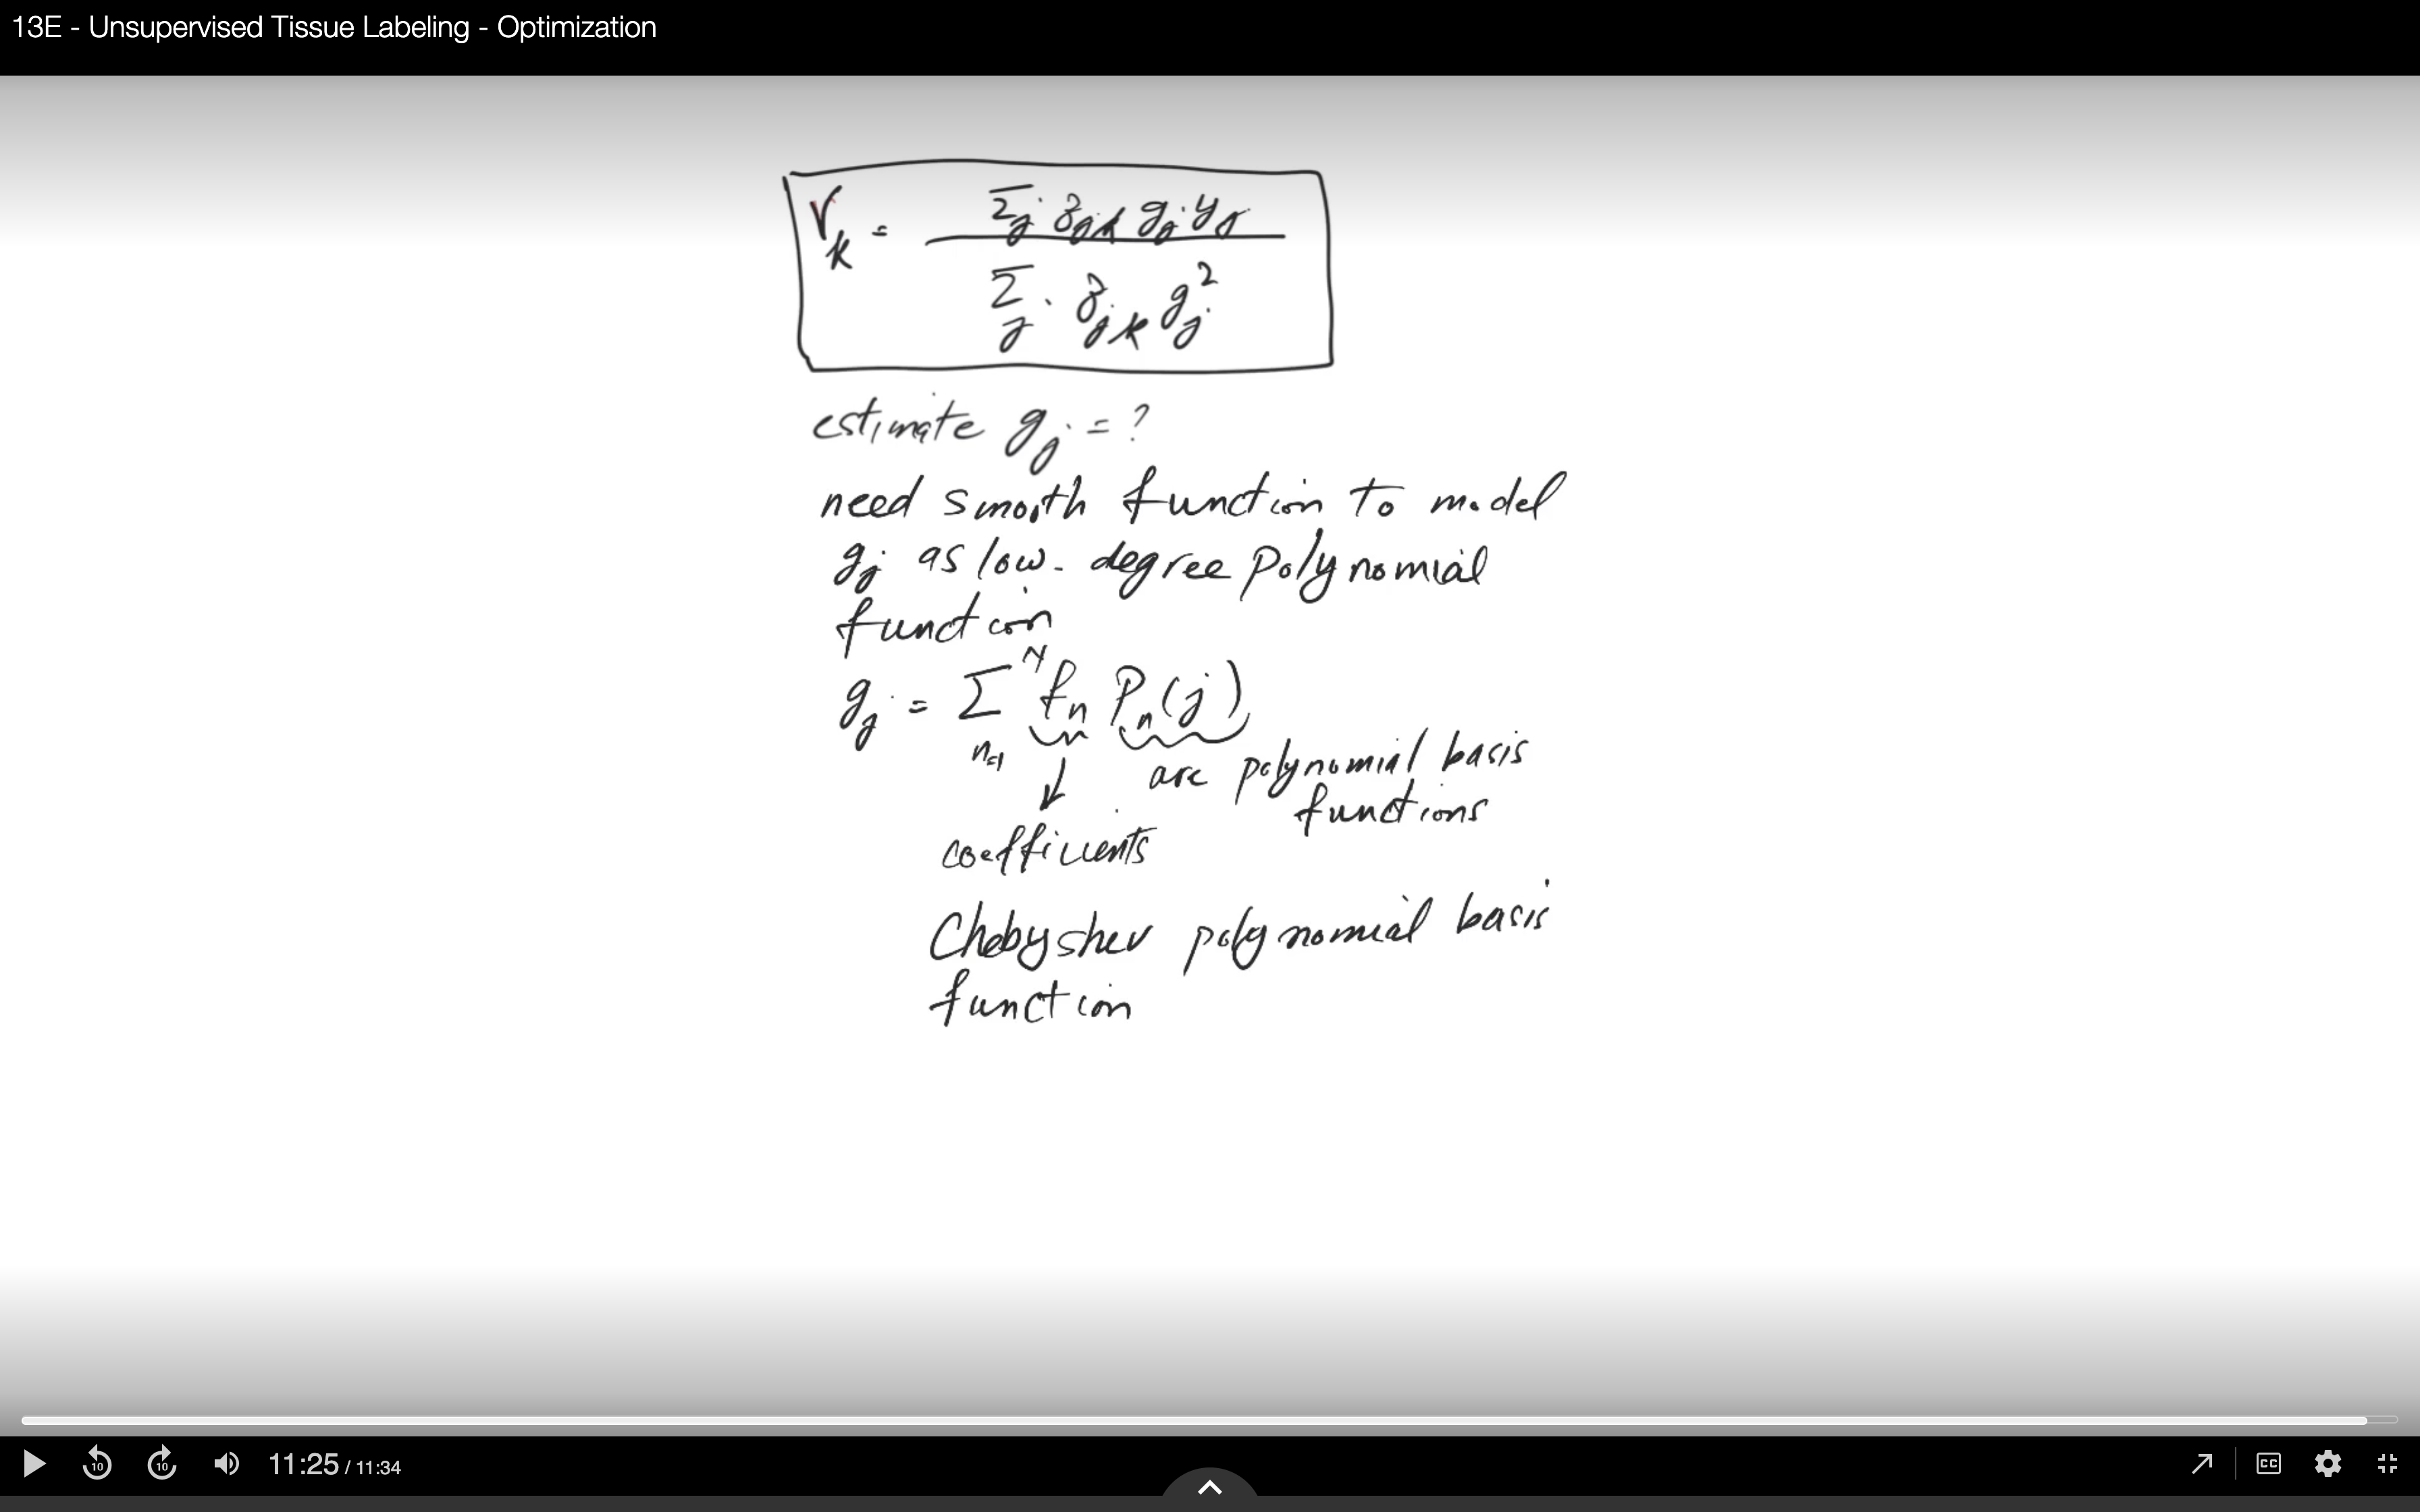 13E - Unsupervised Tissue Labeling - Optimization
V_k = Σ_j z_jk g_j y_j / Σ_j z_jk g_j^2
estimate g_j = ?
need smooth function to model
g_j as low-degree polynomial
function
g_j = Σ_{n=1}^N f_n P_n(j)
are polynomial basis
functions
coefficients
Chebyshev polynomial basis
function
10 10 11:25 / 11:34 CC